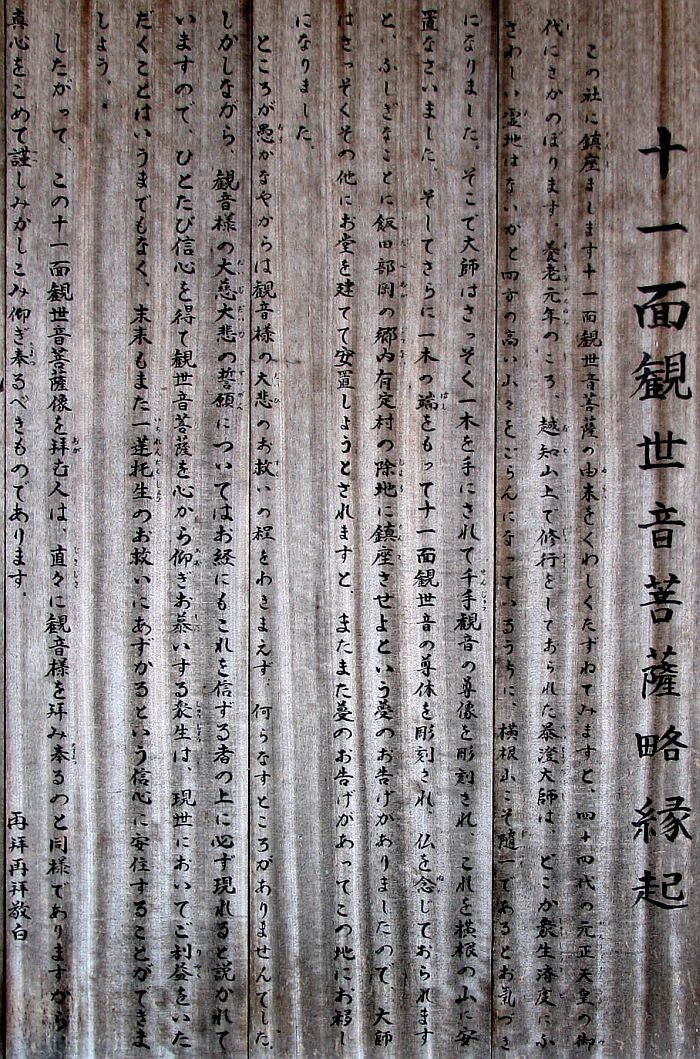 十一面観世音菩薩略縁起
この社に鎮座まします十一面観世音菩薩の由来をくわしくたずねてみますと、四十四代の元正天皇の御
代にさかのぼります。養老元年のころ、越知山上で修行をしておられた泰澄大師は、どこか衆生済度にふ
さわしい霊地はないかと四方の高い山々をごらんになっているうちに、横根山こそ随一であるとお気づき
になりました。そこで大師はさっそく一木を手にされて千手観音の尊像を彫刻され、これを横根の山に安
置なさいました。そしてさらに一木の端をもって十一面観世音の尊体を彫刻され、仏を念じておられます
と、ふしぎなことに飯田部岡の郷内有定村の除地に鎮座させよという夢のお告げがありましたので、大師
はさっそくその他にお堂を建てて安置しようとされますと、またまた夢のお告げがあってこの地にお移し
になりました。
ところが愚かなやからは観音様の大悲のお救いの程をわきまえず、何らなすところがありませんでした。
しかしながら、観音様の大慈大悲の誓願についてはお経にもこれを信ずる者の上に必ず現れると説かれて
いますので、ひとたび信心を得て観世音菩薩を心から仰ぎお慕いする衆生は、現世においてご利益をいた
だくことはいうまでもなく、末来もまた一蓮托生のお救いにあずかるという信心に安住することができま
しょう。
したがって、この十一面観世音菩薩像を拝む人は、直々に観音様を拝み奉るのと同様でありますから、
真心をこめて謹しみかしこみ仰ぎ奉るべきものであります。　再拝再拝敬白